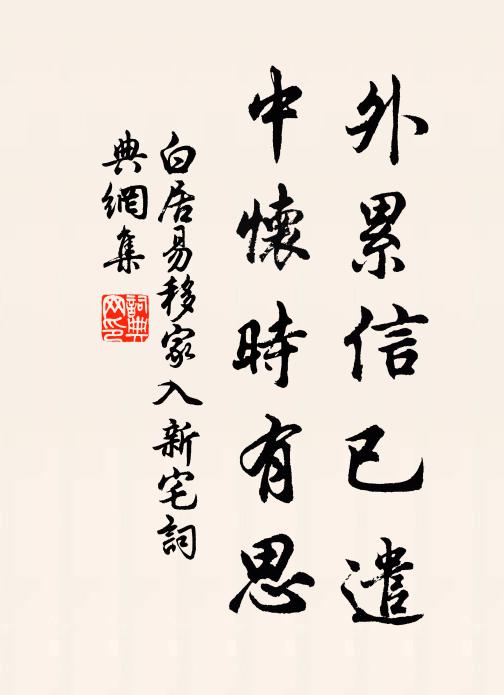 外累信已遣
中懷時有思
白居易移家入新宅詞
典網集
詞典網印